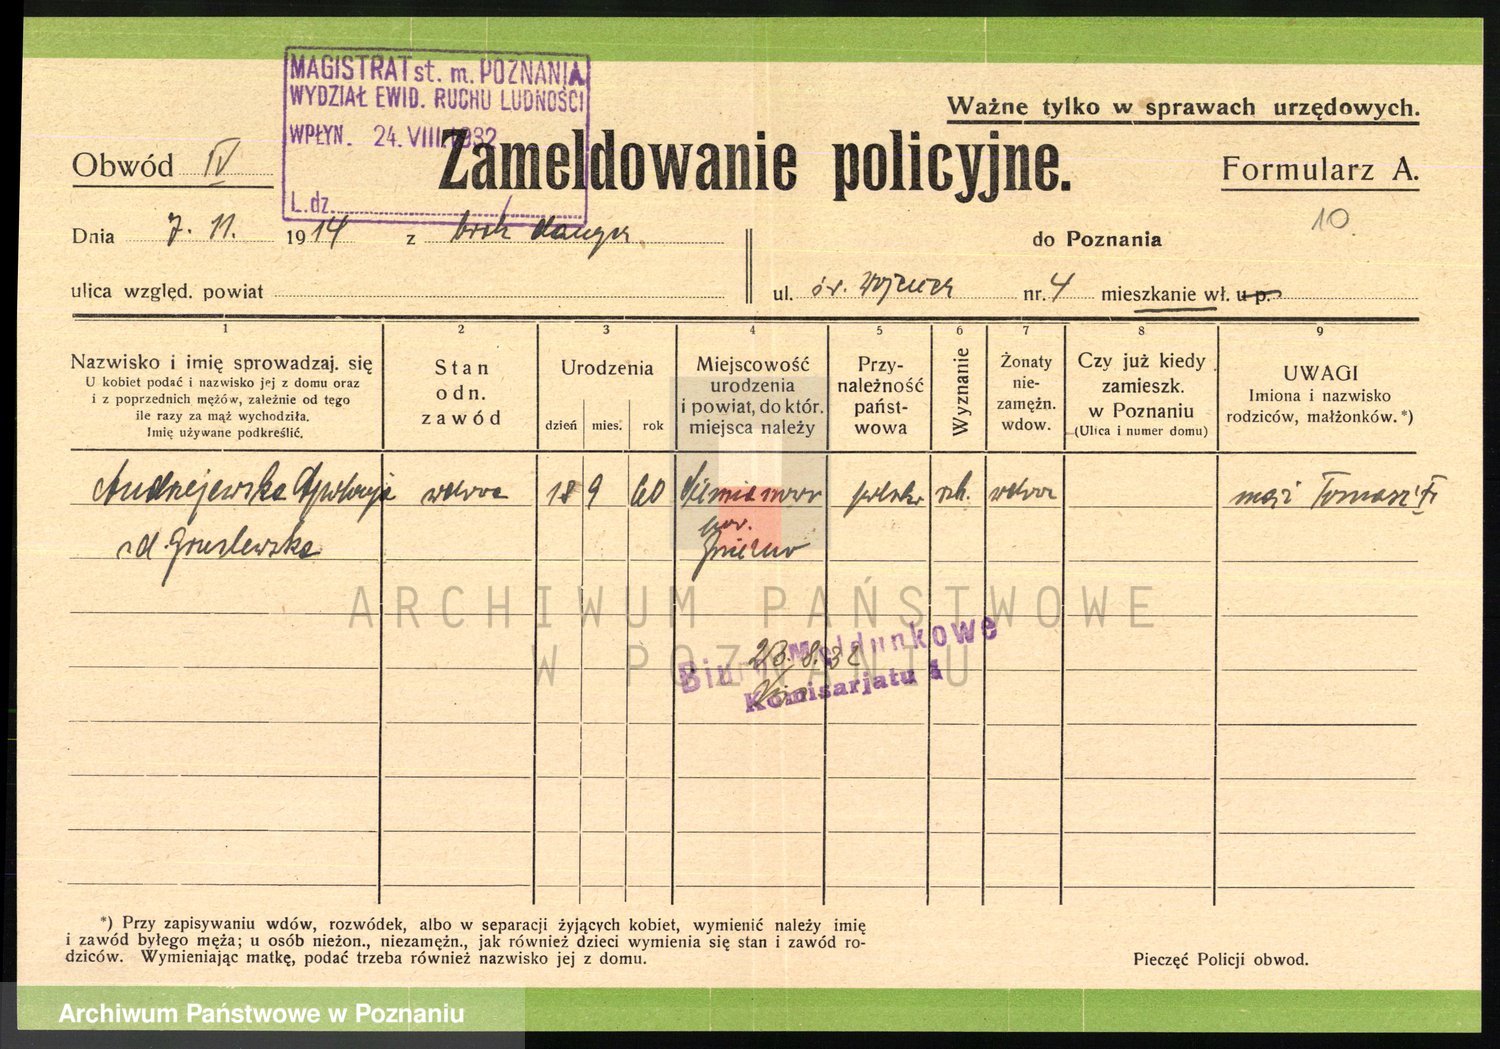 MAGISTRAT st. m. POZNANIA
WYDZIAŁ EWID. RUCHU LUDNOŚCI
WPŁYN. 24. VIII. 1932
L.dz.
Ważne tylko w sprawach urzędowych.
Obwód IV
Zameldowanie policyjne.
Formularz A.
10
Dnia 7. 11. 1914 z brak danych
do Poznania
ulica względ. powiat
ul. św. Wojciech nr. 4 mieszkanie wł. u p.
1 2 3 4 5 6 7 8 9
Nazwisko i imię sprowadzaj. się
U kobiet podać i nazwisko jej z domu oraz
i z poprzednich mężów, zależnie od tego
ile razy za mąż wychodziła.
Imię używane podkreślić.
Stan
odn.
zawód
Urodzenia
dzień mies. rok
Miejscowość
urodzenia
i powiat, do któr.
miejsca należy
Przy-
należność
państ-
wowa
Wyznanie
Żonaty
nie-
zamężn.
wdow.
Czy już kiedy
zamieszk.
w Poznaniu
(Ulica i numer domu)
UWAGI
Imiona i nazwisko
rodziców, małżonków. *)
Andrzejewska Apolonja wdowa 18 9 60 polska rzk. wdowa mąż Tomasz
pow.
Gniezno
ARCHIWUM PAŃSTWOWE
W POZNANIU
Biuro Meldunkowe
23. 8. 32
Komisarjatu
*) Przy zapisywaniu wdów, rozwódek, albo w separacji żyjących kobiet, wymienić należy imię
i zawód byłego męża; u osób nieżon., niezamężn., jak również dzieci wymienia się stan i zawód ro-
dziców. Wymieniając matkę, podać trzeba również nazwisko jej z domu.
Pieczęć Policji obwod.
Archiwum Państwowe w Poznaniu